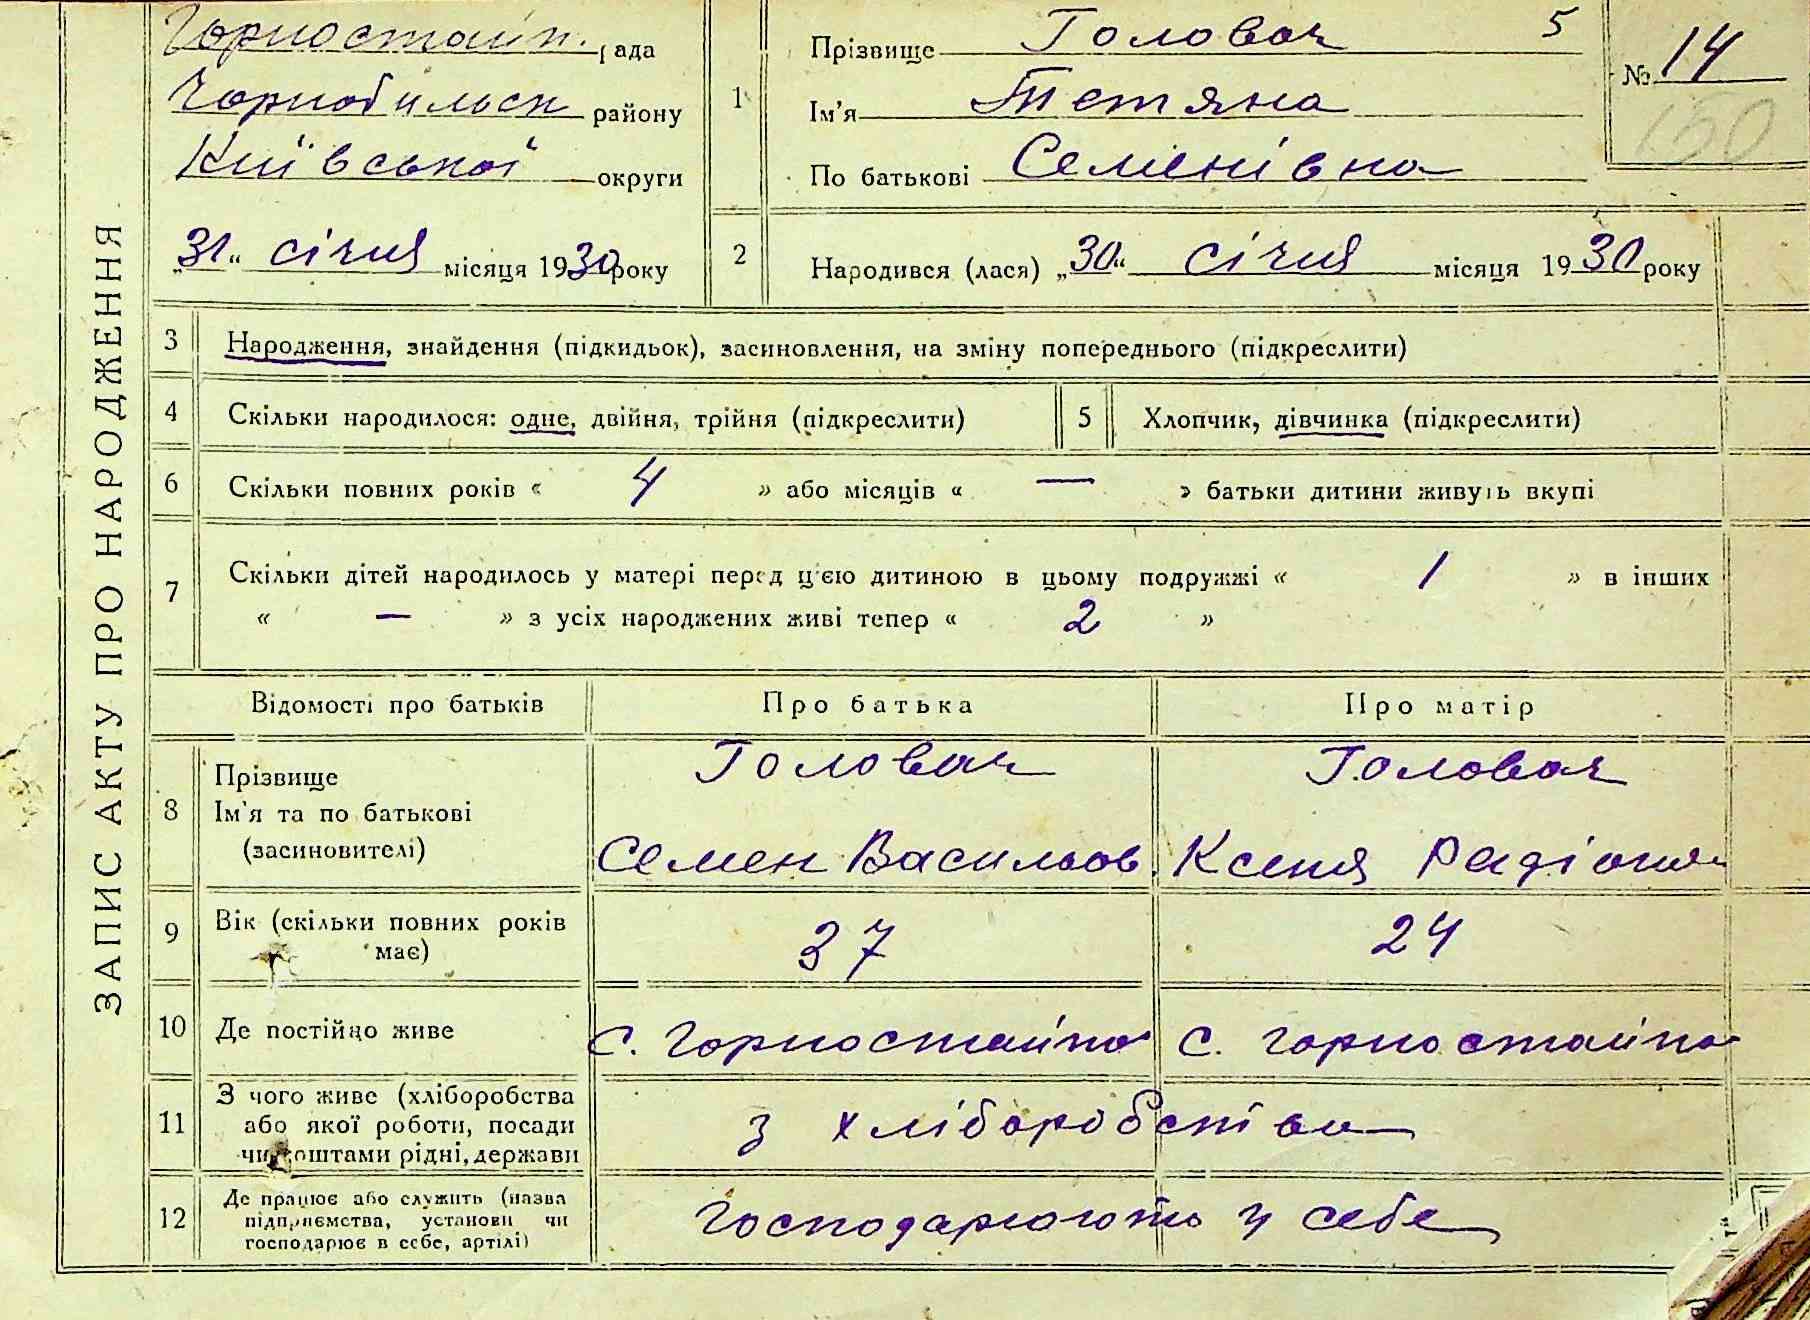 ЗАПИС АКТУ ПРО НАРОДЖЕННЯ
Горностайп. рада
Чорнобильськ району
Київської округи
„31“ січня місяця 1930 року
1
Прізвище Головач 5
Ім'я Тетяна
По батькові Семенівна
№ 14
150
2
Народився (лася) „30“ січня місяця 1930 року
3 Народження, знайдення (підкидьок), засиновлення, на зміну попереднього (підкреслити)
4 Скільки народилося: одне, двійня, трійня (підкреслити)
5 Хлопчик, дівчинка (підкреслити)
6 Скільки повних років « 4 » або місяців « — » батьки дитини живуть вкупі
7 Скільки дітей народилось у матері перед цією дитиною в цьому подружжі « 1 » в інших
« — » з усіх народжених живі тепер « 2 »
Відомості про батьків Про батька Про матір
8 Прізвище
Ім'я та по батькові
(засиновителі)
Головач
Семен Васильов.
Головач
Ксеня Радіоно
9 Вік (скільки повних років
має)
37 24
10 Де постійно живе с. Горностайпо с. Горностайпо
11 З чого живе (хліборобства
або якої роботи, посади
чи коштами рідні, держави
з хліборобства
12 Де працює або служить (назва
підприємства, установи чи
господарює в себе, артілі)
господарюють у себе